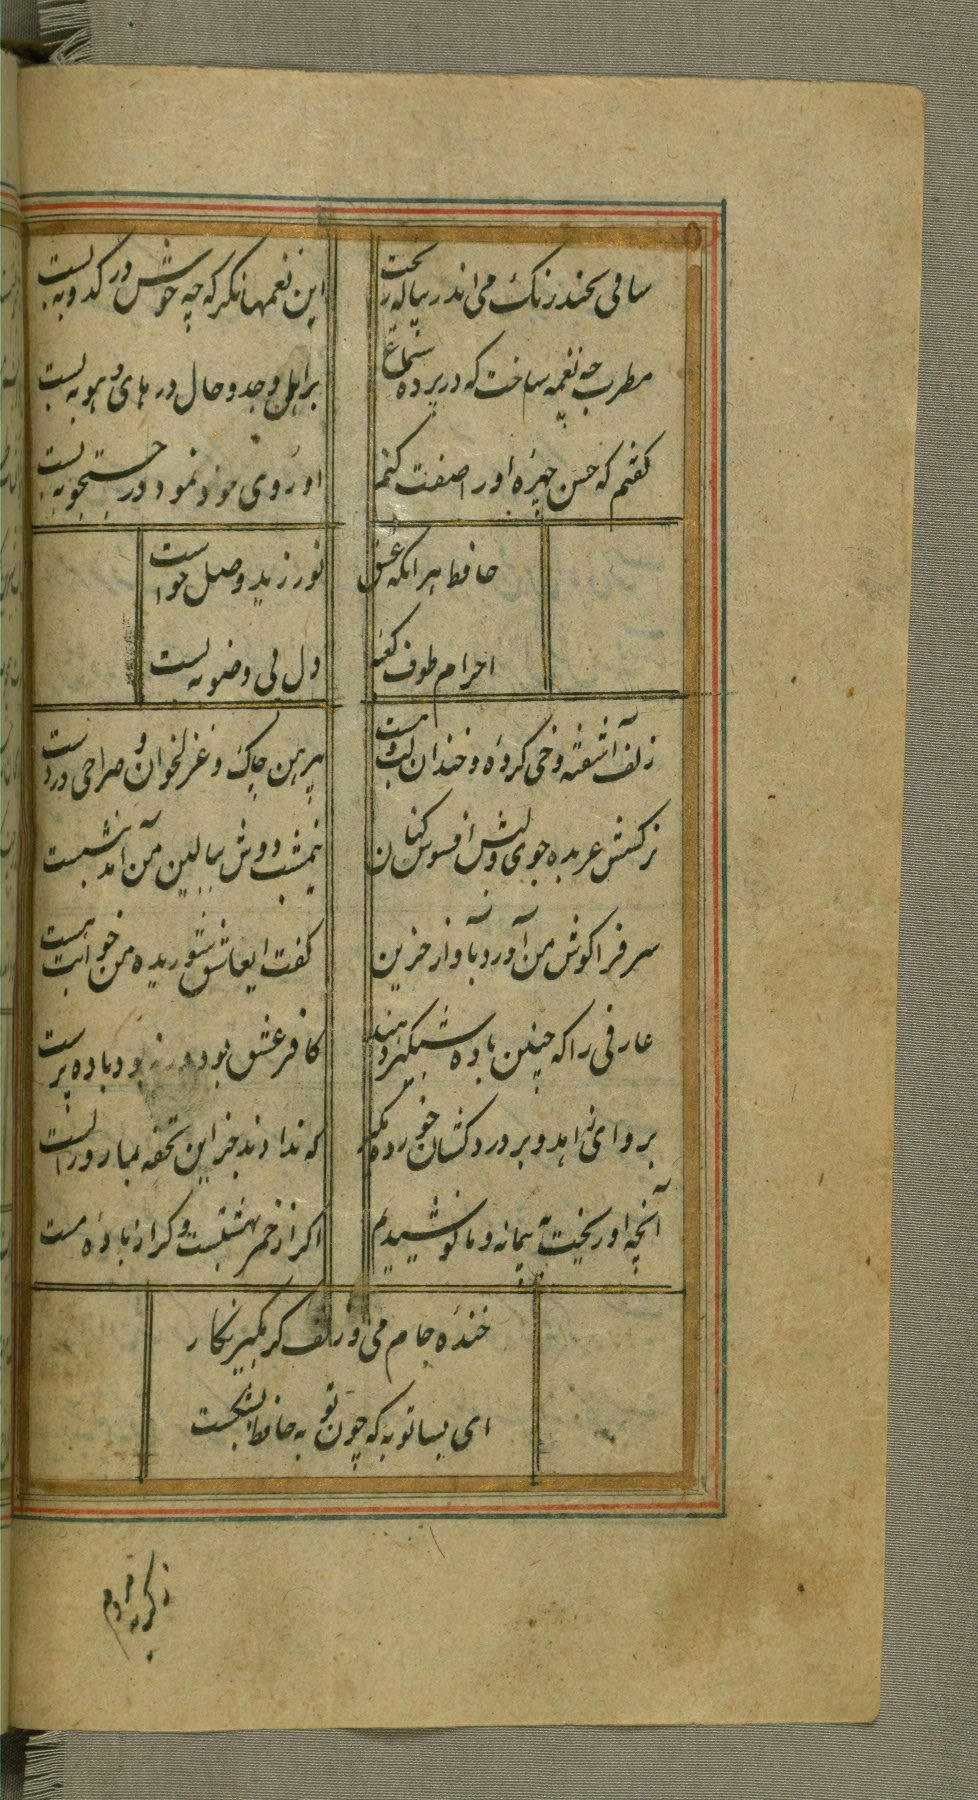 ساقی بچند رنک می اندر پیاله ریخت
این نغمها نکر که چه خوش در کدو ببست
مطرب چه نغمه ساخت که در پرده سماع
بر اهل وجد و حال در های و هو ببست
کفتم که حسن چهره او را صفت کنم
او روی خود نمود و در جستجو ببست
حافظ هر انکه عشق
نورزید و وصل خواست
احرام طوف کعبه
دل بی وضو ببست
زلف آشفته و خی کرده و خندان لب و مست
پیرهن چاک و غزلخوان و صراحی در دست
نرکسش عربده جوی و لبش افسوس کنان
نیمشب دوش ببالین من آمد بنشست
سر فرا کوش من آورد بآواز حزین
کفت ایعاشق شوریده من خوابت هست
عارفی را که چنین باده شبکیر دهند
کافر عشق بود ور نبود باده پرست
برو ای زاهد و بر دردکشان خورده مکیر
که ندادند جز این تحفه بما روز الست
آنچه او ریخت به پیمانه و ما نوشیدیم
اکر از خمر بهشتست و کر از باده مست
خنده جام می و زلف کره کیر نکار
ای بسا توبه که چون توبه حافظ بشکست
زکریه مردم